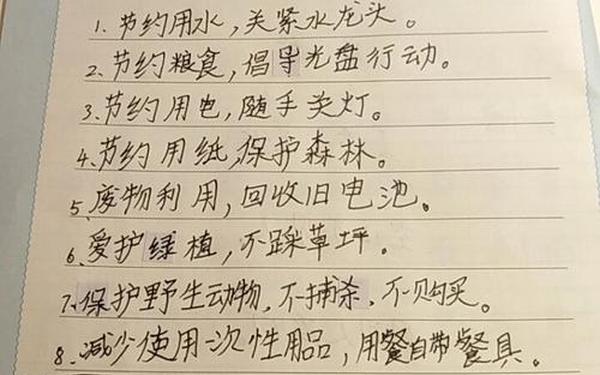 1. 节约用水，关紧水龙头。
2. 节约粮食，倡导光盘行动。
3. 节约用电，随手关灯。
4. 节约用纸，保护森林。
5. 废物利用，回收旧电池。
6. 爱护绿植，不踩草坪。
7. 保护野生动物，不捕杀，不购买。
8. 减少使用一次性用品，用餐自带餐具。